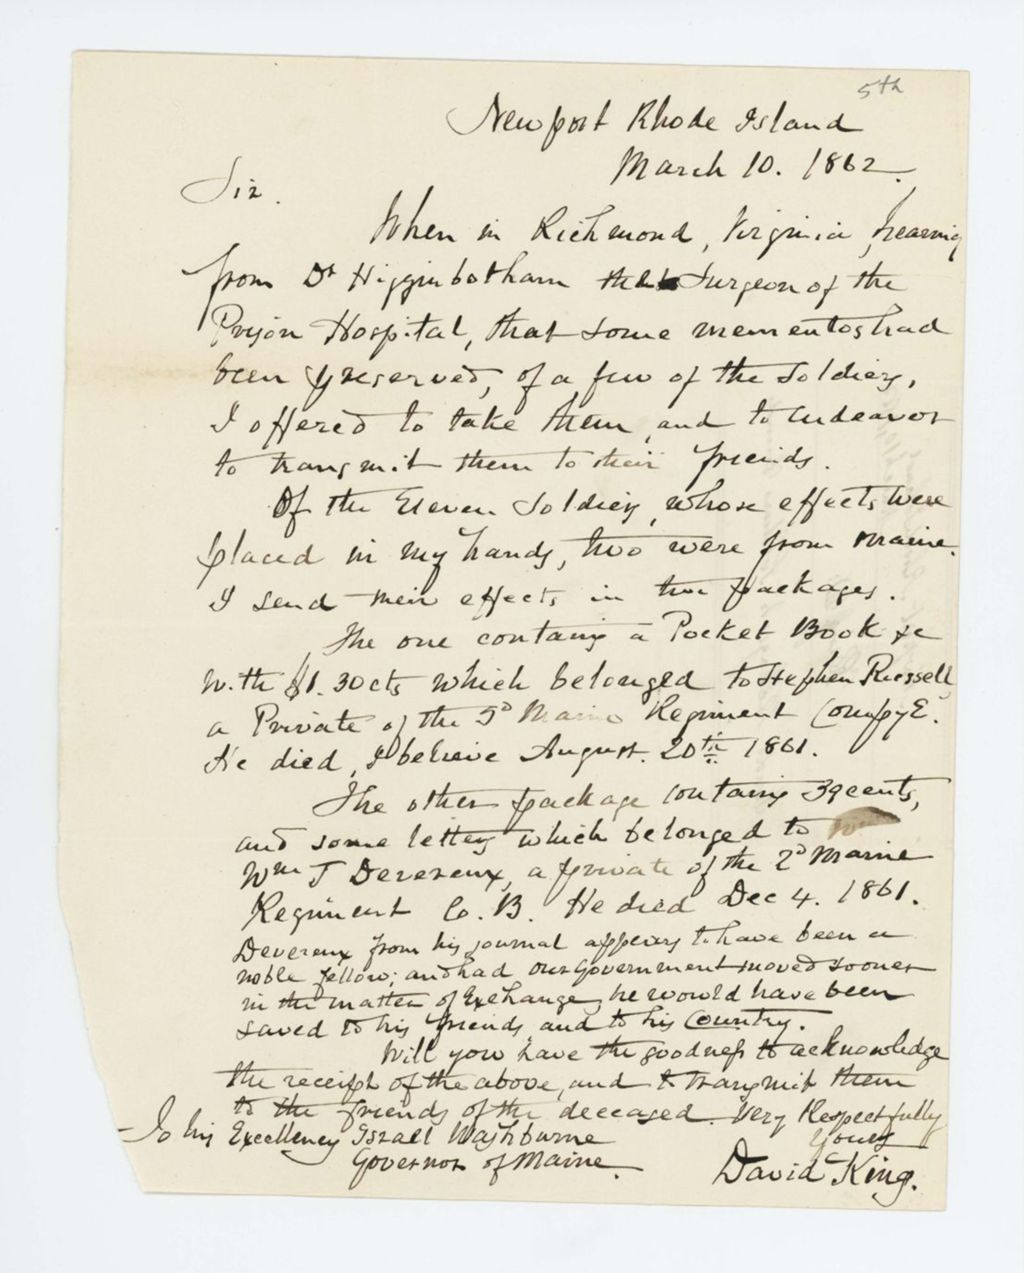 5th
Newport Rhode Island
March 10. 1862.
Sir.
When in Richmond, Virginia, hearing
from Dr Higginbotham the Surgeon of the
Prison Hospital, that some mementos had
been preserved, of a few of the Soldiers,
I offered to take them, and to endeavor
to transmit them to their friends.
Of the Eleven Soldiers, whose effects were
placed in my hands, two were from Maine.
I send their effects in two packages.
The one contains a Pocket Book &c
with $1.30cts which belonged to Stephen Russell,
a Private of the 5d Maine Regiment CompyE.
He died, I believe August. 20th 1861.
The other package contains 39cents,
and some letters which belonged to
Wm J Devereux, a private of the 2d Maine
Regiment Co. B. He died Dec 4. 1861.
Devereux from his journal appears to have been a
noble fellow; and had our Government moved sooner
in the matter of Exchange, he would have been
saved to his friends, and to his Country.
Will you have the goodness to acknowledge
the receipt of the above, and to transmit them
to the friends of the deceased. Very Respectfully
To his Excellency Israel Washburne Yours
Governor of Maine. David King.